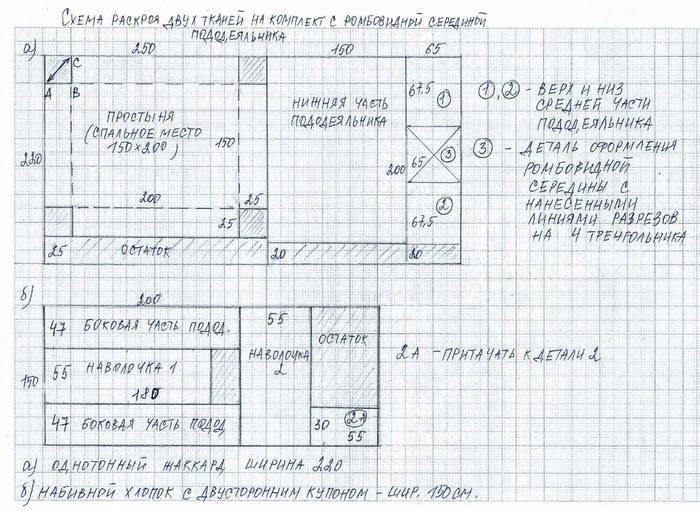 Схема раскроя двух тканей на комплект с ромбовидной серединой
пододеяльника
а) 250 150 65
С
А В
ПРОСТЫНЯ
(СПАЛЬНОЕ МЕСТО
150х200)
150
220
200 25
25
25 ОСТАТОК
НИЖНЯЯ ЧАСТЬ
ПОДОДЕЯЛЬНИКА
200
20
67,5
1
65 3
2
67,5
20
1, 2 - ВЕРХ И НИЗ
СРЕДНЕЙ ЧАСТИ
ПОДОДЕЯЛЬНИКА
3 - ДЕТАЛЬ ОФОРМЛЕНИЯ
РОМБОВИДНОЙ
СЕРЕДИНЫ С
НАНЕСЕННЫМИ
ЛИНИЯМИ РАЗРЕЗОВ
НА 4 ТРЕУГОЛЬНИКА
б)
200
150
47 БОКОВАЯ ЧАСТЬ ПОДОД.
55 НАВОЛОЧКА 1
180
47 БОКОВАЯ ЧАСТЬ ПОДОД
55
НАВОЛОЧКА
2
ОСТАТОК
30 2А
55
2А - ПРИТАЧАТЬ К ДЕТАЛИ 2
а) ОДНОТОННЫЙ ЖАККАРД ШИРИНА 220
б) НАБИВНОЙ ХЛОПОК С ДВУСТОРОННИМ КУПОНОМ - ШИР. 150СМ.